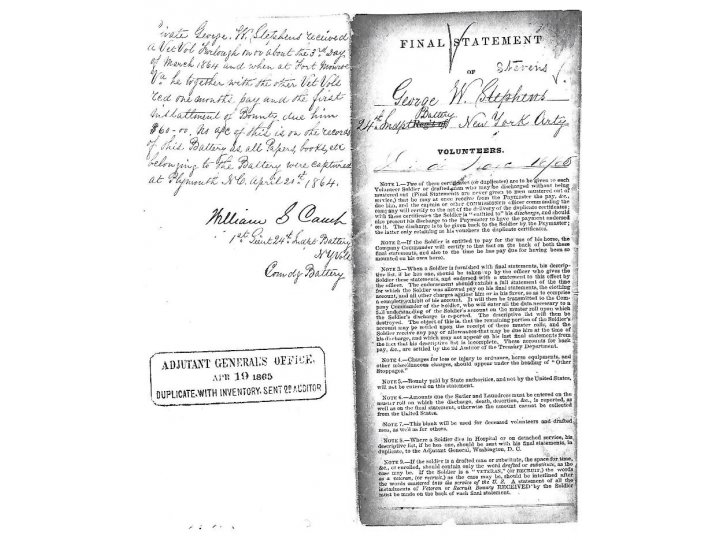 Private George. W. Stephens received
a Vet Vol Furlough on or about the 3rd Day.
of March 1864 and when at Fort Monroe
Va he together with the other Vet Vols
red one months pay and the first
installment of Bounty due him
$60.00. As of this is on the records
of this Battery as all Papers, books, &c
belonging to the Battery were captured
at Plymouth N.C. April 20th 1864.
William S Camp
1st Lieut 24th Indpt Battery
N.Y. Vols
Comdg Battery
ADJUTANT GENERAL'S OFFICE.
APR 19 1865
DUPLICATE, WITH INVENTORY, SENT 2D AUDITOR
FINAL STATEMENT
OF
Stevens
George W. Stephens
Battery
24th Indpt Reg't of New York Arty
VOLUNTEERS.
NOTE 1.—Two of these certificates (or duplicates) are to be given to each
Volunteer Soldier or drafted man who may be discharged without being
mustered out (Final Statements are never given to men mustered out of
service,) that he may at once receive from the Paymaster the pay, &c.,
due him, and the captain or other COMMISSIONED officer commanding the
company will certify to the act of the delivery of the duplicate certificates;
with these certificates the Soldier is "entitled to" his discharge, and should
also present his discharge to the Paymaster to have the payment endorsed
on it. The discharge is to be given back to the Soldier by the Paymaster;
the latter only retaining as his vouchers the duplicate certificates.
NOTE 2.—If the Soldier is entitled to pay for the use of his horse, the
Company Commander will certify to that fact on the back of both these
final statements, and also to the time he has pay due for having been so
mounted on his own horse.
NOTE 3.—When a Soldier is furnished with final statements, his descrip-
tive list, if he has one, should be taken up by the officer who gives the
Soldier these statements, and endorsed with a statement to this effect by
the officer. The endorsement should exhibit a full statement of the time
for which the Soldier was allowed pay on his final statements, the clothing
account, and all other charges against him or in his favor, so as to comprise
a complete exhibit of his account. It will then be transmitted to the Com-
pany Commander of the Soldier, who will enter all the data necessary to a
full understanding of the Soldier's account on the muster roll upon which
the Soldier's discharge is reported. The descriptive list will then be
destroyed. The object of this is, that the remaining portion of the Soldier's
account may be settled upon the receipt of these muster rolls, and the
Soldier receive any pay or allowances that may be due him at the time of
his discharge, and which may not appear on his last final statements from
the fact that his descriptive list is incomplete. These accounts for back
pay, &c., are settled by the 2d Auditor of the Treasury Department.
NOTE 4.—Charges for loss or injury to ordnance, horse equipments, and
other miscellaneous charges, should appear under the heading of "Other
Stoppages."
NOTE 5.—Bounty paid by State authority, and not by the United States,
will not be entered on this statement.
NOTE 6.—Amounts due the Sutler and Laundress must be entered on the
muster roll on which the discharge, death, desertion, &c., is reported, as
well as on the final statement, otherwise the amount cannot be collected
from the United States.
NOTE 7.—This blank will be used for deceased volunteers and drafted
men, as well as for others.
NOTE 8.—Where a Soldier dies in Hospital or on detached service, his
descriptive list, if he has one, should be sent with his final statements, in
duplicate, to the Adjutant General, Washington, D. C.
NOTE 9.—If the soldier is a drafted man or substitute, the space for time,
&c., or enrolled, should contain only the word drafted or substitute, as the
case may be. If the Soldier is a "VETERAN," (or RECRUIT,) the words
as a veteran, (or recruit,) as the case may be, should be interlined after
the words mustered into the service of the U. S. A statement of all the
instalments of Veteran or Recruit Bounty RECEIVED by the Soldier
must be made on the back of each final statement.